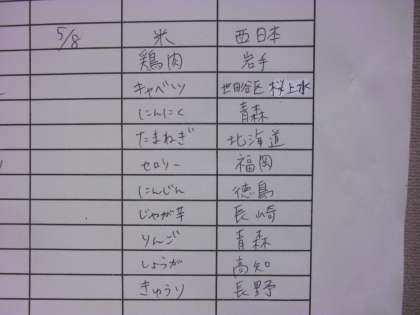 5/8 米 西日本
鶏肉 岩手
キャベツ 世田谷区 桜上水
にんにく 青森
たまねぎ 北海道
セロリー 福岡
にんじん 徳島
じゃが芋 長崎
りんご 青森
しょうが 高知
きゅうり 長野